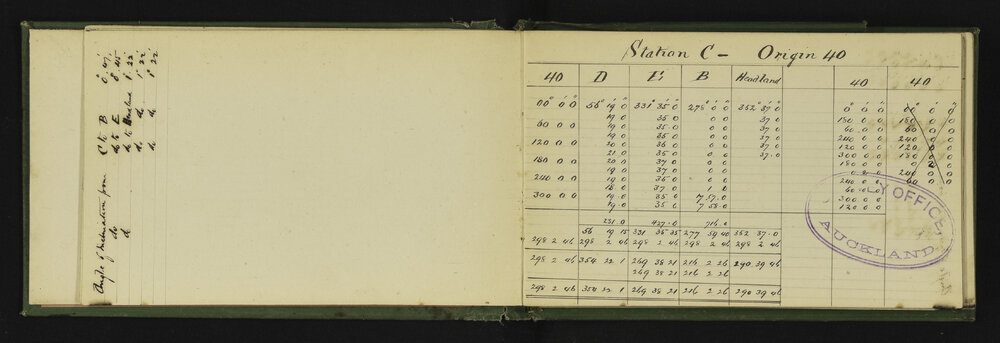 Angle of Inclination from C to B 0° 47'
do do to E 0. 45
do to Headland 1° 22'
do do 1° 22'
do do 1° 22'
Station C – Origin 40
40 D E B Headland 40 40
00° 0' 0" 56° 19' 0" 331° 35' 0" 278° 0' 0" 352° 37' 0" 0° 0' 0" 00° 0' 0"
19 0 35 0 0 0 37 0 180 0 0 180 0 0
60 0 0 19 0 35 0 0 0 37 0 60 0 0 60 0
19 0 35 0 0 0 37 0 240 0 0 240 0
120 0 0 20 0 36 0 0 0 37 0 120 0 0 120 0
21 0 35 0 0 0 37 0 300 0 0 180 0
180 0 0 20 0 37 0 0 0 180 0 0
19 0 37 0 0 0 0 0 0 240 0
240 0 0 19 0 36 0 0 0 240 0 0 0
18 0 37 0 1 0 60 0 0
300 0 0 19 0 35 0 7 57 0 300 0 0
19 0 35 0 7 58 0 120 0 0
231 0 427 0 716 0
56 19 15 331 35 35 277 59 40 352 37 0
298 2 46 298 2 46 298 2 46 298 2 46 298 2 46
298 2 46 354 22 1 269 38 21 216 2 26 290 39 46
269 38 21 216 2 26
298 2 46 354 22 1 269 38 21 216 2 26 290 39 46
Y OFFICE
AUCKLAND